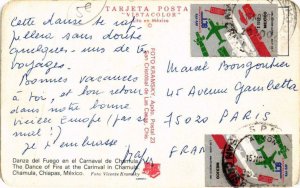 TARJETA POSTAL
"VISTACOLOR"
Hecho en México
Cette danse te rap-
pellera sans doute
quelques-uns de tes
voyages.
Bonnes vacances
à toi, et bon retour
dans notre bonne
vieille Europe (pas si
mal !)
Je t'embrasse
FOTO KRAMSKY. Apdo. Postal 22
San Cristóbal de Las Casas, Chis.
Marcel Bongouthier
45 Avenue Gambetta
75020 PARIS
FRAN
Danza del Fuego en el Carnaval de Chamula
The Dance of Fire at the Carnival in Chamula
Chamula, Chiapas, México.
Foto Vicente Kramsky